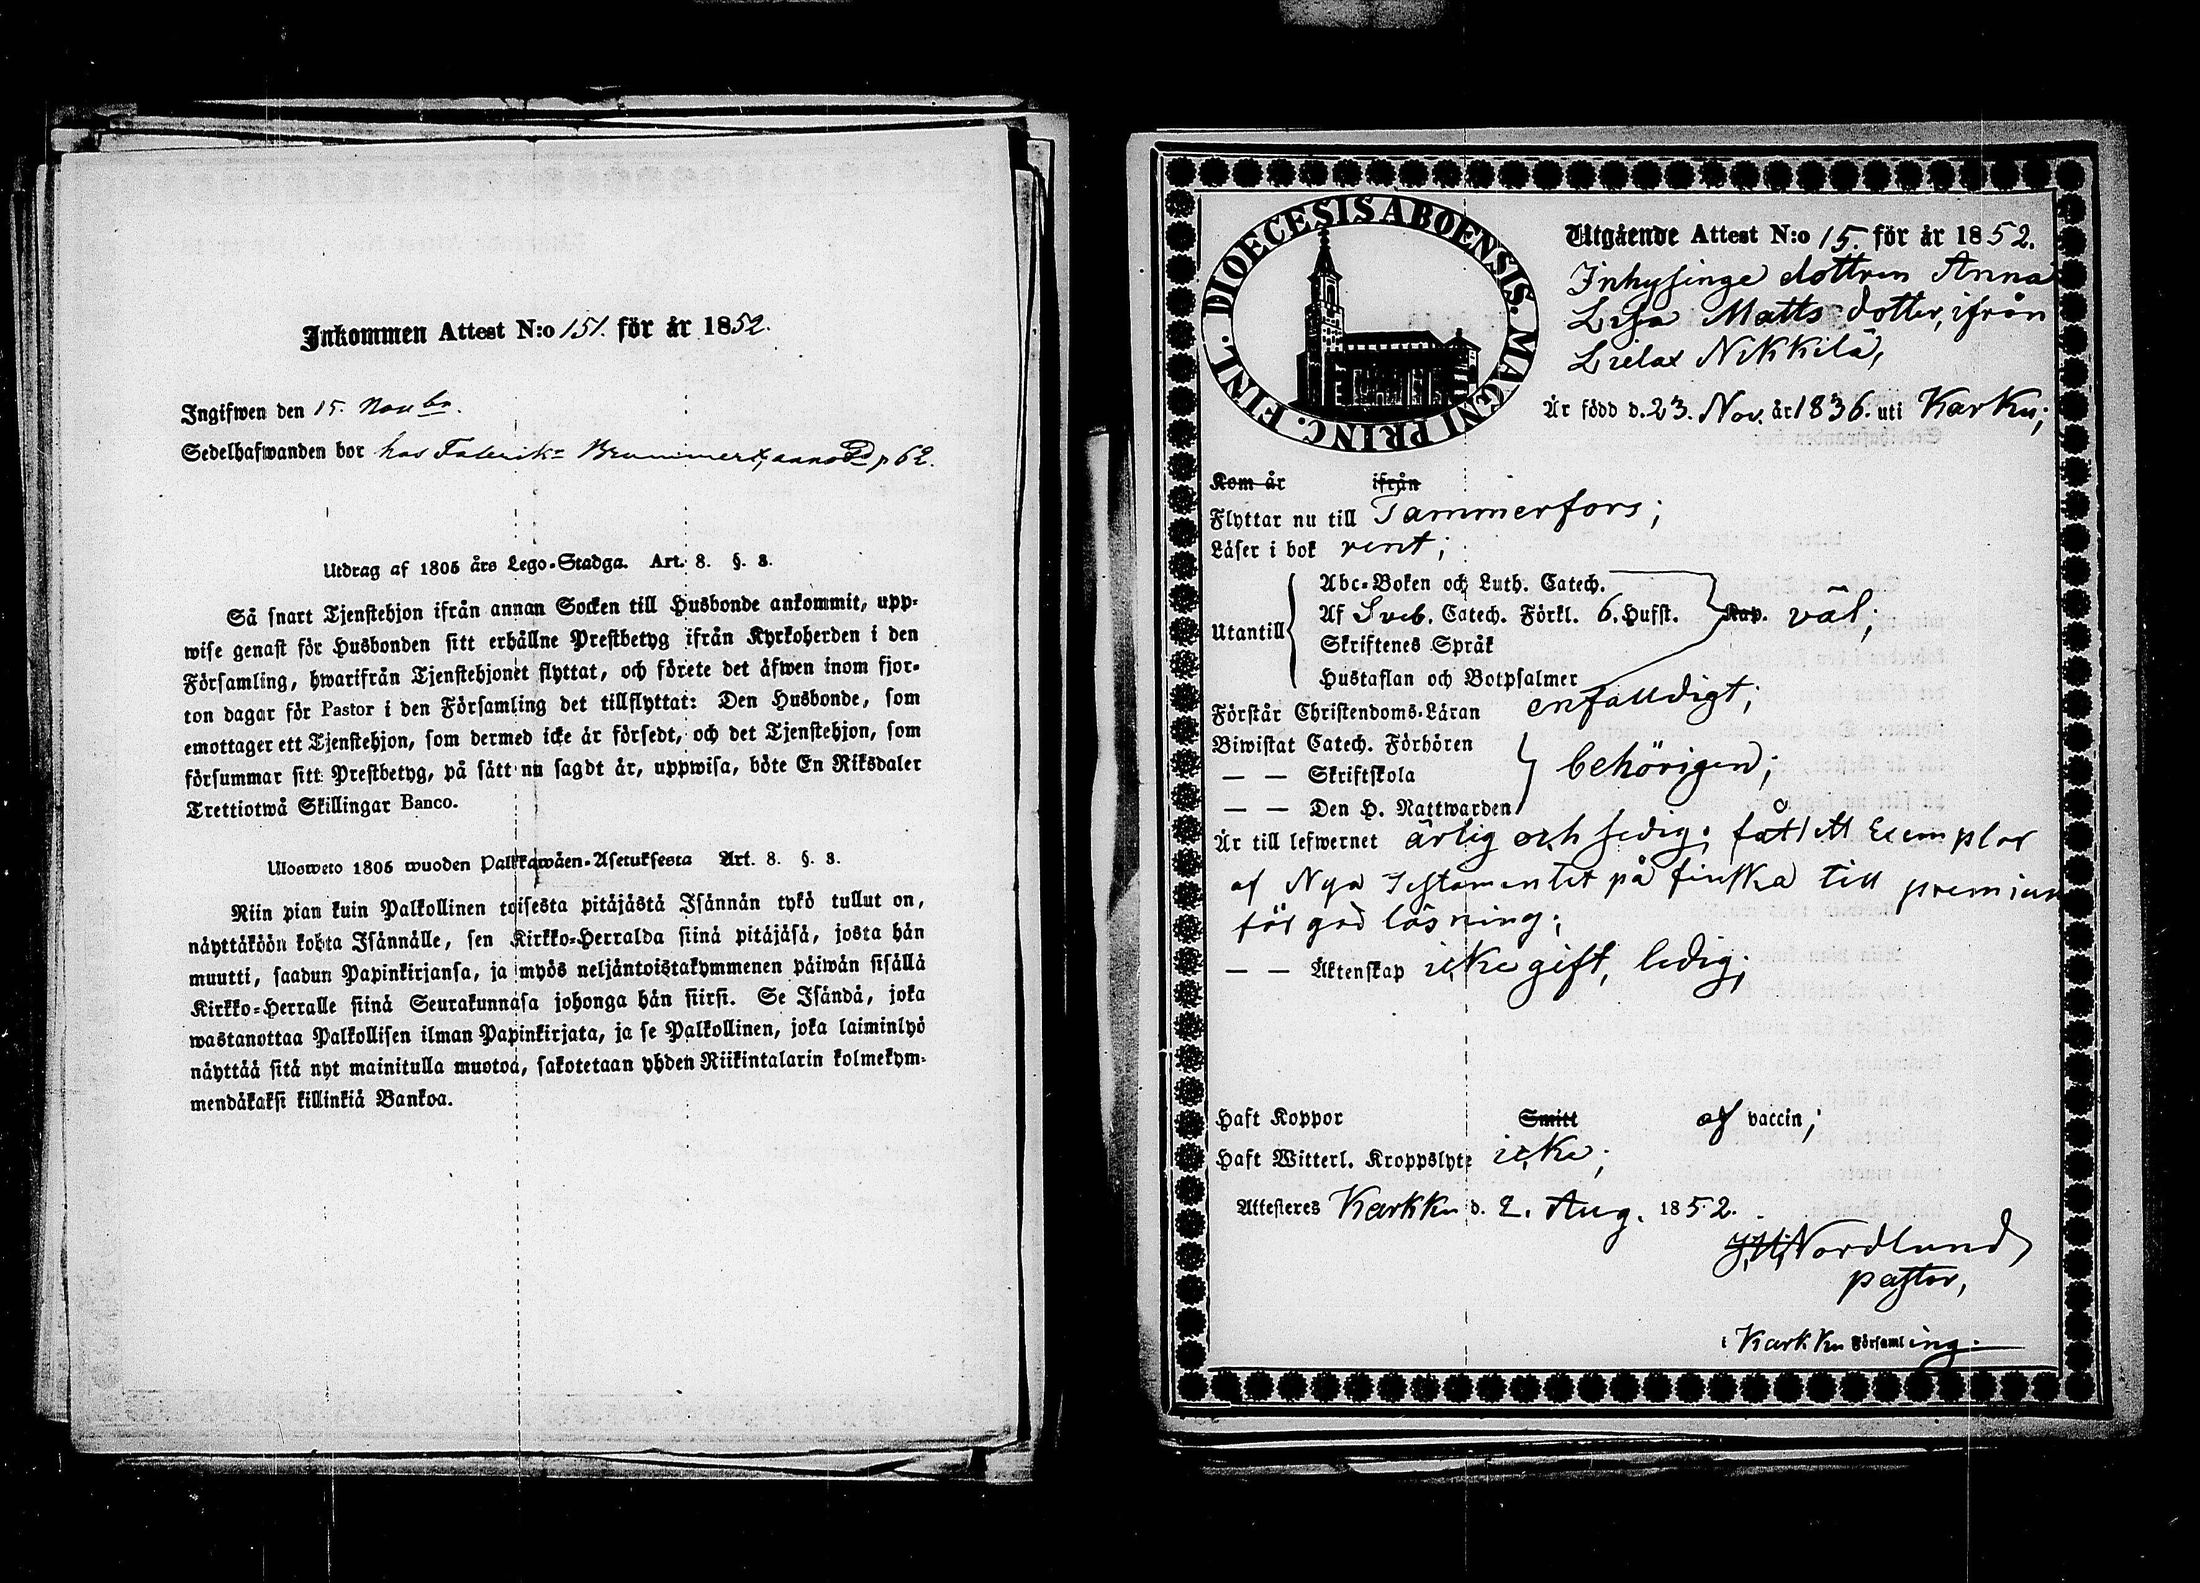 Inkommen Attest N:o 151. för år 1852.
Ingifwen den 15. Novbr.
Sedelhafwanden bor hos Fabrik= Brummer, p 62.
Utdrag af 1805 års Lego-Stadga. Art. 8. §. 3.
Så snart Tjenstehjon ifrån annan Socken till Husbonde ankommit, upp-
wise genast för Husbonden sitt erhållne Prestbetyg ifrån Kyrkoherden i den
Församling, hwarifrån Tjenstehjonet flyttat, och förete det äfwen inom fjor-
ton dagar för Pastor i den Församling det tillflyttat: Den Husbonde, som
emottager ett Tjenstehjon, som dermed icke är försedt, och det Tjenstehjon, som
försummar sitt Prestbetyg, på sätt nu sagdt är, uppwisa, böte En Riksdaler
Trettiotwå Skillingar Banco.
Ulosweto 1805 wuoden Palkkawäen-Asetuksesta Art. 8. §. 3.
Niin pian kuin Palkollinen toisesta pitäjästä Isännän tykö tullut on,
näyttäköön kohta Isännälle, sen Kirkko-Herralda siinä pitäjäsä, josta hän
muutti, saadun Papinkirjansa, ja myös neljäntoistakymmenen päiwän sisällä
Kirkko-Herralle siinä Seurakunnasa johonga hän siirsi. Se Isändä, joka
wastanottaa Palkollisen ilman Papinkirjata, ja se Palkollinen, joka laiminlyö
näyttää sitä nyt mainitulla muotoa, sakotetaan yhden Riikintalarin kolmekym-
mendäkaksi killinkiä Bankoa.
DIOECESIS ABOENSIS. MAGNI PRINC. FINL.
Utgående Attest N:o 15. för år 1852.
Inhysinge dottren Anna
Lisa Matts dotter, ifrån
Lielax Nikkilä,
Är född d. 23. Nov. år 1836. uti Karku;
Kom år ifrån
Flyttar nu till Tammerfors;
Läser i bok rent;
Utantill
Abc-Boken och Luth. Catech.
Af Sveb. Catech. Förkl. 6. Hufst. Kap. väl;
Skriftenes Språk
Hustaflan och Botpsalmer
Förstår Christendoms-Läran enfalldigt;
Biwistat Catech. Förhören
— — Skriftskola behörigen;
— — Den H. Nattwarden
Är till lefwernet ärlig och sedig; fått ett Exemplar
af Nya Testamentet på finska till premium
för god läsning;
— — Äktenskap icke gift, ledig;
Haft Koppor Smitt af vaccin;
Haft Witterl. Kroppslyte icke;
Attesteres Karkku d. 2. Aug. 1852.
J. H. Nordlund
pastor,
i Karkku Församling.